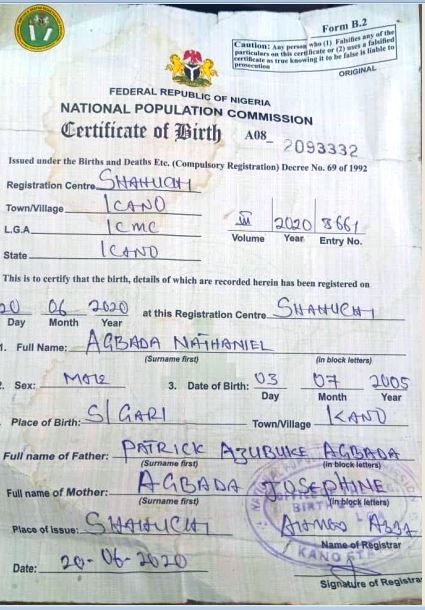 Form B.2
Caution: Any person who (1) Falsifies any of the
particulars on this certificate or (2) uses a falsified
certificate as true knowing it to be false is liable to
prosecution
ORIGINAL
FEDERAL REPUBLIC OF NIGERIA
NATIONAL POPULATION COMMISSION
Certificate of Birth A08- 2093332
Issued under the Births and Deaths Etc. (Compulsory Registration) Decree No. 69 of 1992
Registration Centre SHAHUCHI
Town/Village KANO
L.G.A KMC
III 2020 3661
Volume Year Entry No.
State KANO
This is to certify that the birth, details of which are recorded herein has been registered on
20 06 2020 at this Registration Centre SHAHUCHI
Day Month Year
1. Full Name: AGBADA NATHANIEL
(Surname first) (in block letters)
2. Sex: MALE 3. Date of Birth: 03 07 2005
Day Month Year
Place of Birth: S/GARI Town/Village KANO
Full name of Father: PATRICK AZUBUKE AGBADA
(Surname first) (in block letters)
Full name of Mother: AGBADA JOSEPHINE
(Surname first) (in block letters)
Place of Issue: SHAHUCHI
Name of Registrar
Date: 20-06-2020
Signature of Registrar